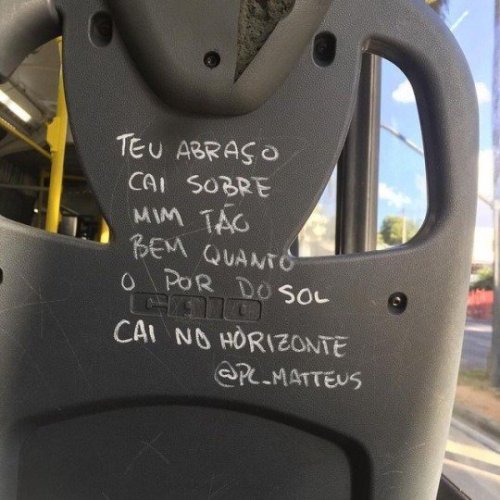 TEU ABRAÇO
CAI SOBRE
MIM TÃO
BEM QUANTO
O POR DO SOL
CAIO
CAI NO HORIZONTE
@PL_MATTEUS